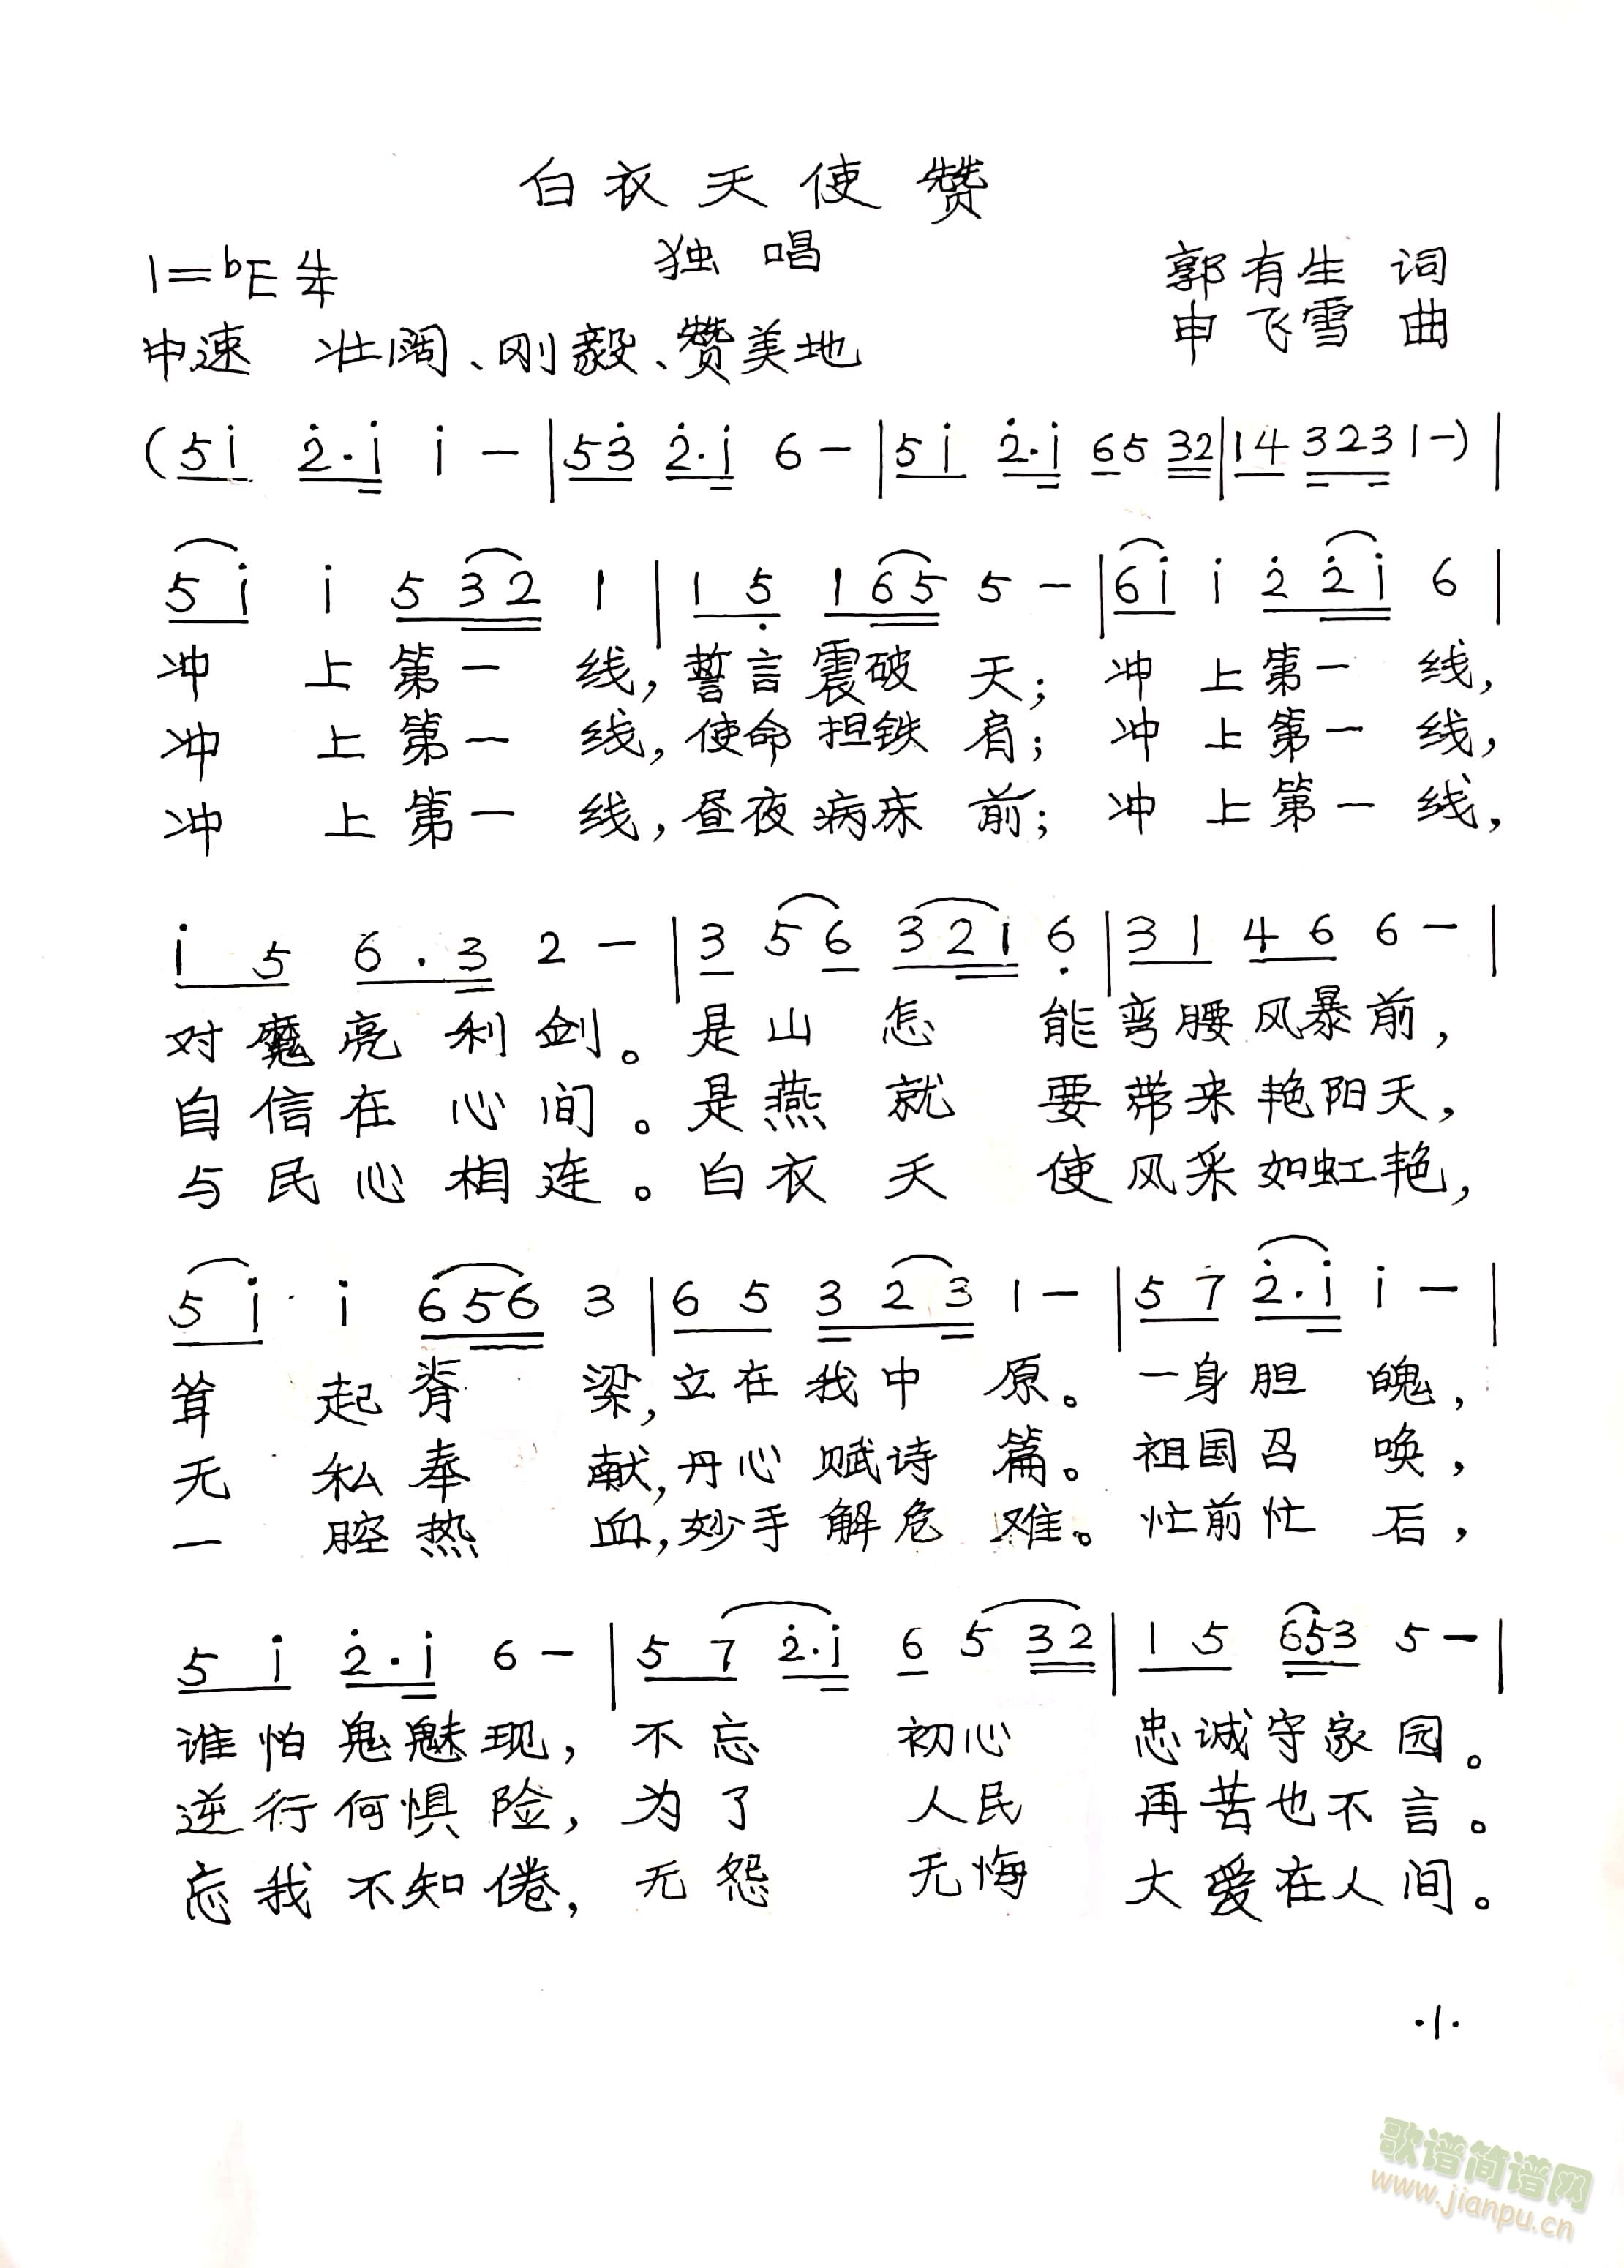 白衣天使赞
独唱
1=♭E 4/4
郭有生 词
中速 壮阔、刚毅、赞美地
申飞雪 曲
(5i 2·i i - | 53 2·i 6 - | 5i 2·i 65 32 | 14 323 1 -) |
5i i 532 1 | 15 165 5 - | 6i i 22i 6 |
冲上第一线,誓言震破天;冲上第一线,
冲上第一线,使命担铁肩;冲上第一线,
冲上第一线,昼夜病床前;冲上第一线,
i5 6·3 2 - | 3 56 321 6 | 31 46 6 - |
对魔亮利剑。是山怎能弯腰风暴前,
自信在心间。是燕就要带来艳阳天,
与民心相连。白衣天使风采如虹艳,
5i i 656 3 | 65 323 1 - | 57 2·i i - |
耸起脊梁,立在我中原。一身胆魄,
无私奉献,丹心赋诗篇。祖国召唤,
一腔热血,妙手解危难。忙前忙后,
5i 2·i 6 - | 57 2·i 6 5 32 | 15 653 5 - |
谁怕鬼魅现,不忘初心忠诚守家园。
逆行何惧险,为了人民再苦也不言。
忘我不知倦,无怨无悔大爱在人间。
·1·
歌谱简谱网
www.jianpu.cn